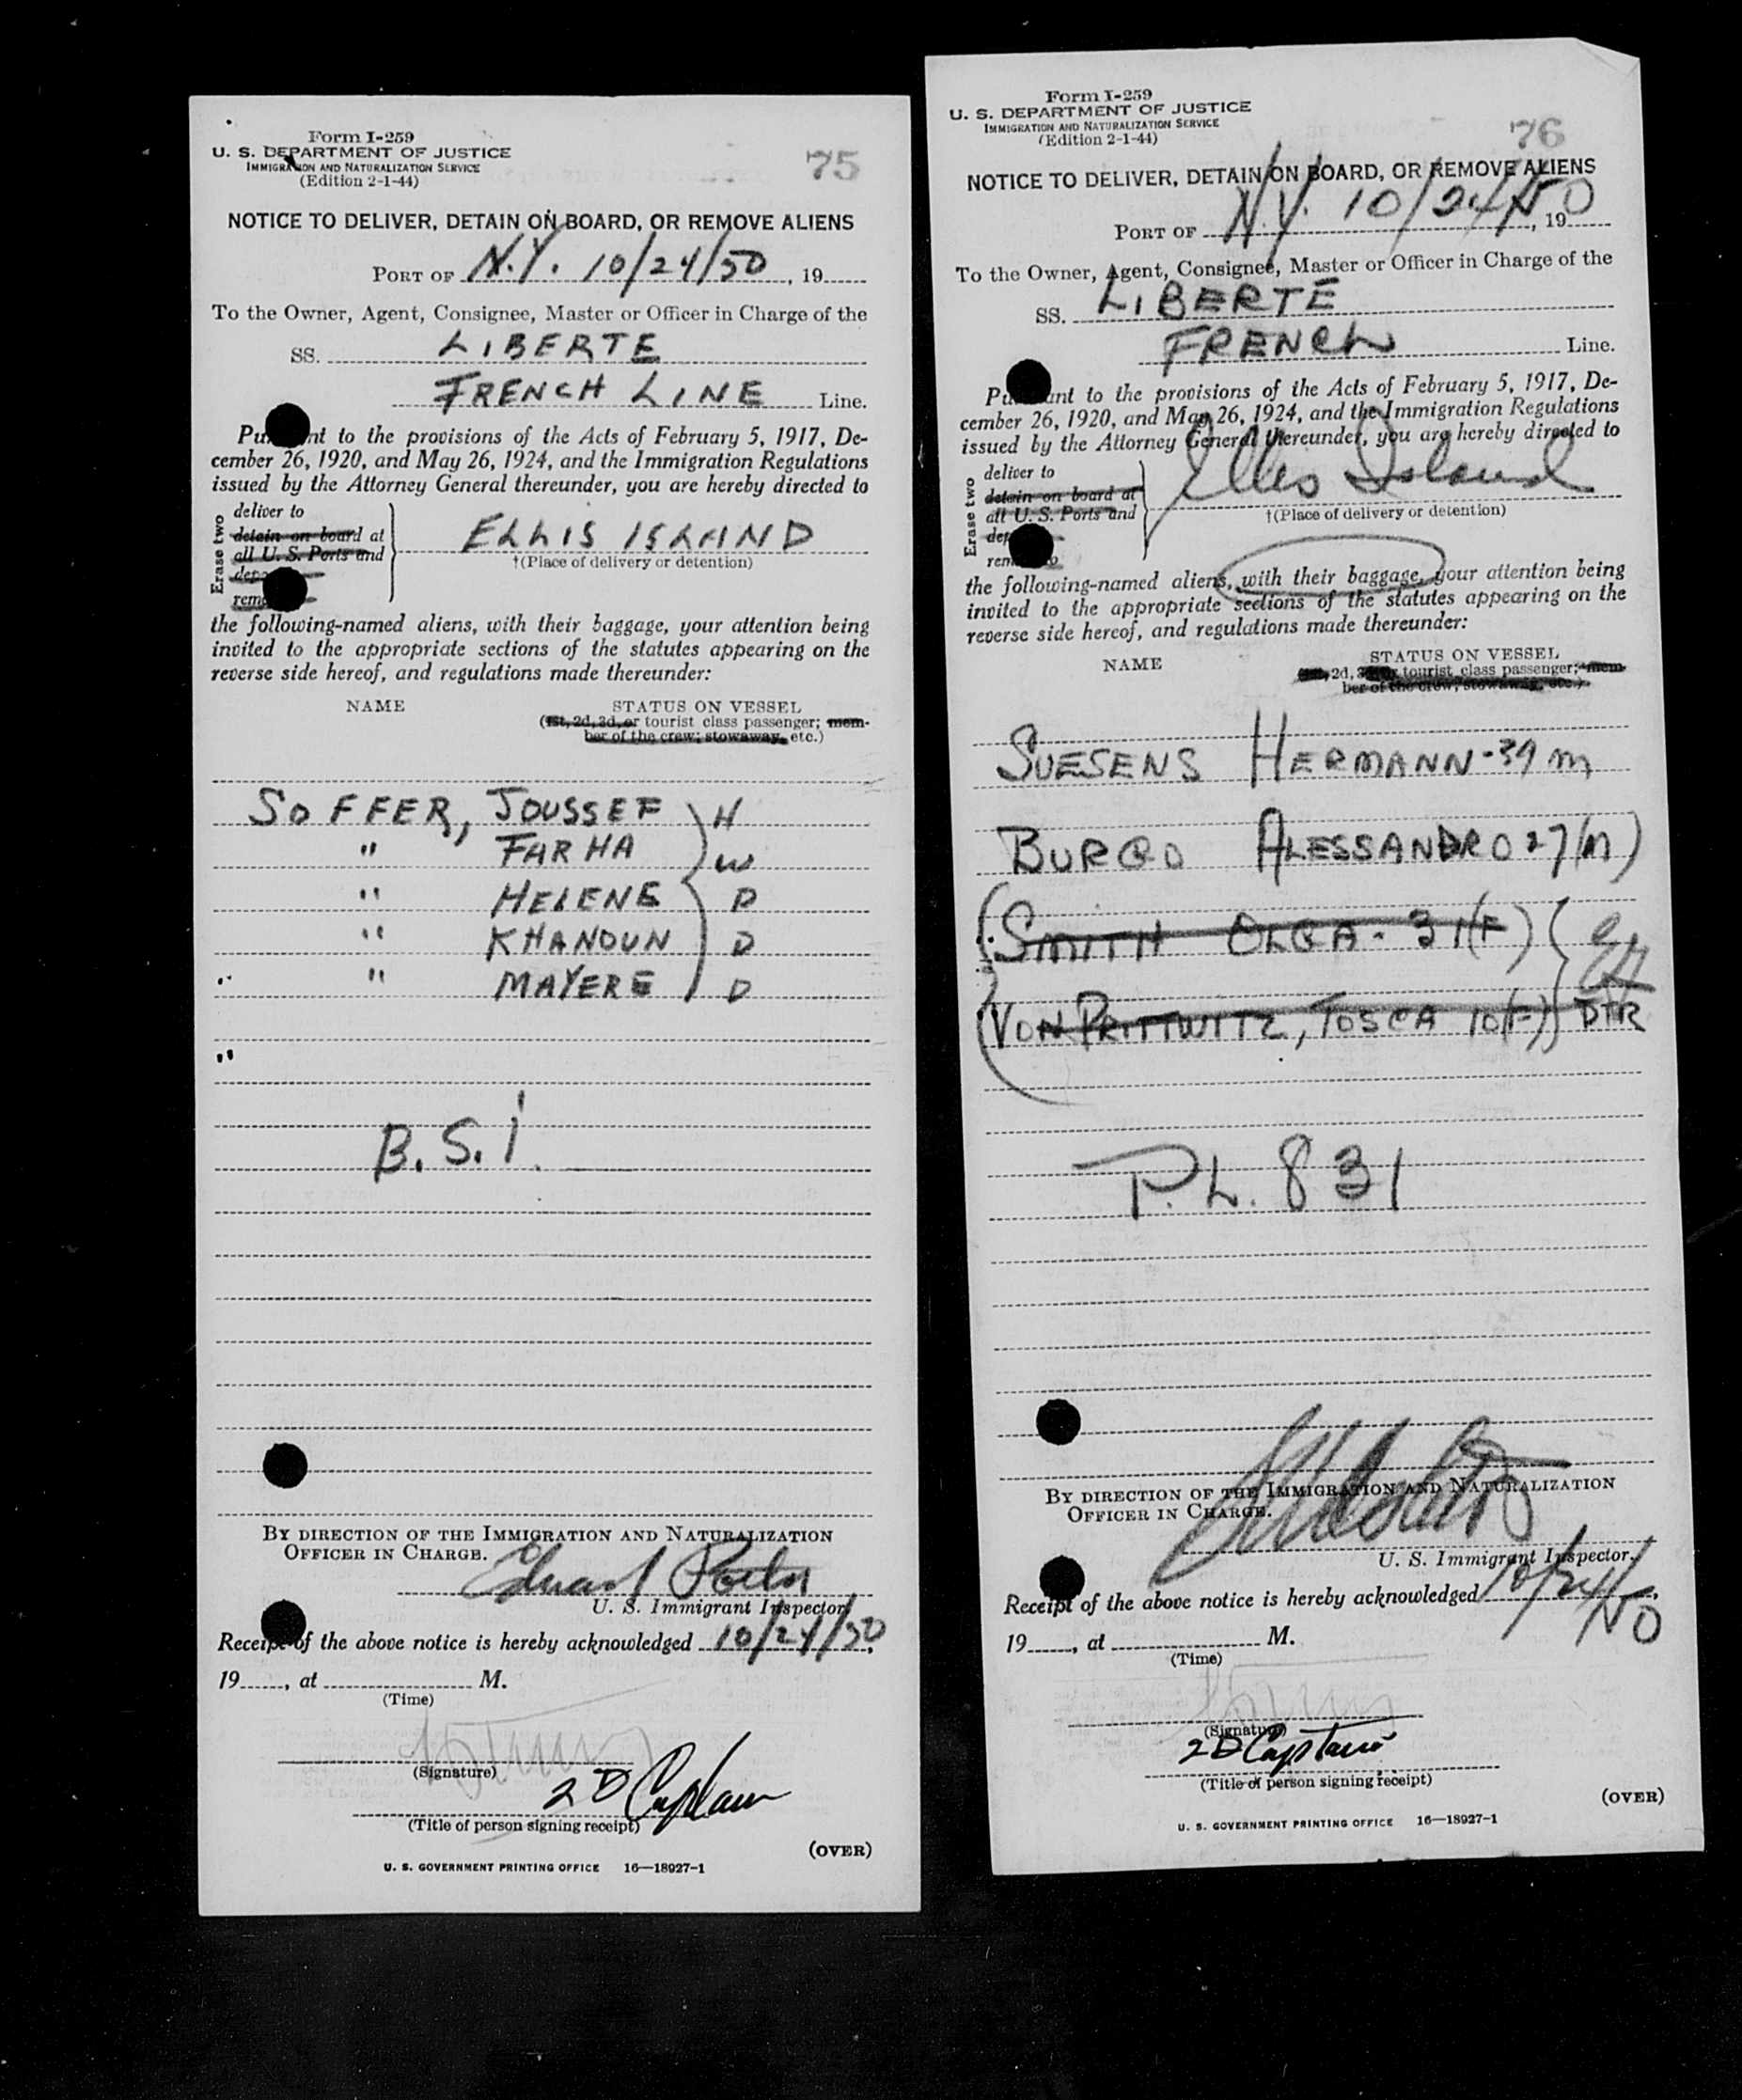 Form I-259
U. S. DEPARTMENT OF JUSTICE
IMMIGRATION AND NATURALIZATION SERVICE
(Edition 2-1-44)
75
NOTICE TO DELIVER, DETAIN ON BOARD, OR REMOVE ALIENS
PORT OF N.Y. 10/24/50, 19
To the Owner, Agent, Consignee, Master or Officer in Charge of the
SS. LIBERTE
FRENCH LINE Line.
Pursuant to the provisions of the Acts of February 5, 1917, De-
cember 26, 1920, and May 26, 1924, and the Immigration Regulations
issued by the Attorney General thereunder, you are hereby directed to
Erase two
deliver to
detain on board at
all U. S. Ports and
ELLIS ISLAND
†(Place of delivery or detention)
the following-named aliens, with their baggage, your attention being
invited to the appropriate sections of the statutes appearing on the
reverse side hereof, and regulations made thereunder:
NAME STATUS ON VESSEL
(1st, 2d, 3d, or tourist class passenger; mem-
ber of the crew; stowaway, etc.)
SOFFER, JOUSSEF H
" FARHA W
" HELENE D
" KHANOUN D
" MAYERE D
B.S.I.
BY DIRECTION OF THE IMMIGRATION AND NATURALIZATION
OFFICER IN CHARGE.
U. S. Immigrant Inspector
Receipt of the above notice is hereby acknowledged 10/24/50,
19, at M.
(Time)
(Signature)
2D Captain
(Title of person signing receipt)
(OVER)
U. S. GOVERNMENT PRINTING OFFICE 16—18927-1
Form I-259
U. S. DEPARTMENT OF JUSTICE
IMMIGRATION AND NATURALIZATION SERVICE
(Edition 2-1-44)
76
NOTICE TO DELIVER, DETAIN ON BOARD, OR REMOVE ALIENS
PORT OF N.Y. 10/24/50, 19
To the Owner, Agent, Consignee, Master or Officer in Charge of the
SS. LIBERTE
FRENCH Line.
Pursuant to the provisions of the Acts of February 5, 1917, De-
cember 26, 1920, and May 26, 1924, and the Immigration Regulations
issued by the Attorney General thereunder, you are hereby directed to
Erase two
deliver to
detain on board at
all U. S. Ports and
Ellis Island
†(Place of delivery or detention)
the following-named aliens, with their baggage, your attention being
invited to the appropriate sections of the statutes appearing on the
reverse side hereof, and regulations made thereunder:
NAME STATUS ON VESSEL
2d, tourist class passenger; mem-
ber of the crew; stowaway, etc.)
SUESENS HERMANN-39 m
BURGO ALESSANDRO 27(M)
SMITH OLGA - 31(F)
VON PRITTWITZ, TOSCA 10(F) DTR
P.L. 831
BY DIRECTION OF THE IMMIGRATION AND NATURALIZATION
OFFICER IN CHARGE.
U. S. Immigrant Inspector.
Receipt of the above notice is hereby acknowledged 10/24/50,
19, at M.
(Time)
(Signature)
2D Captain
(Title of person signing receipt)
(OVER)
U. S. GOVERNMENT PRINTING OFFICE 16—18927-1